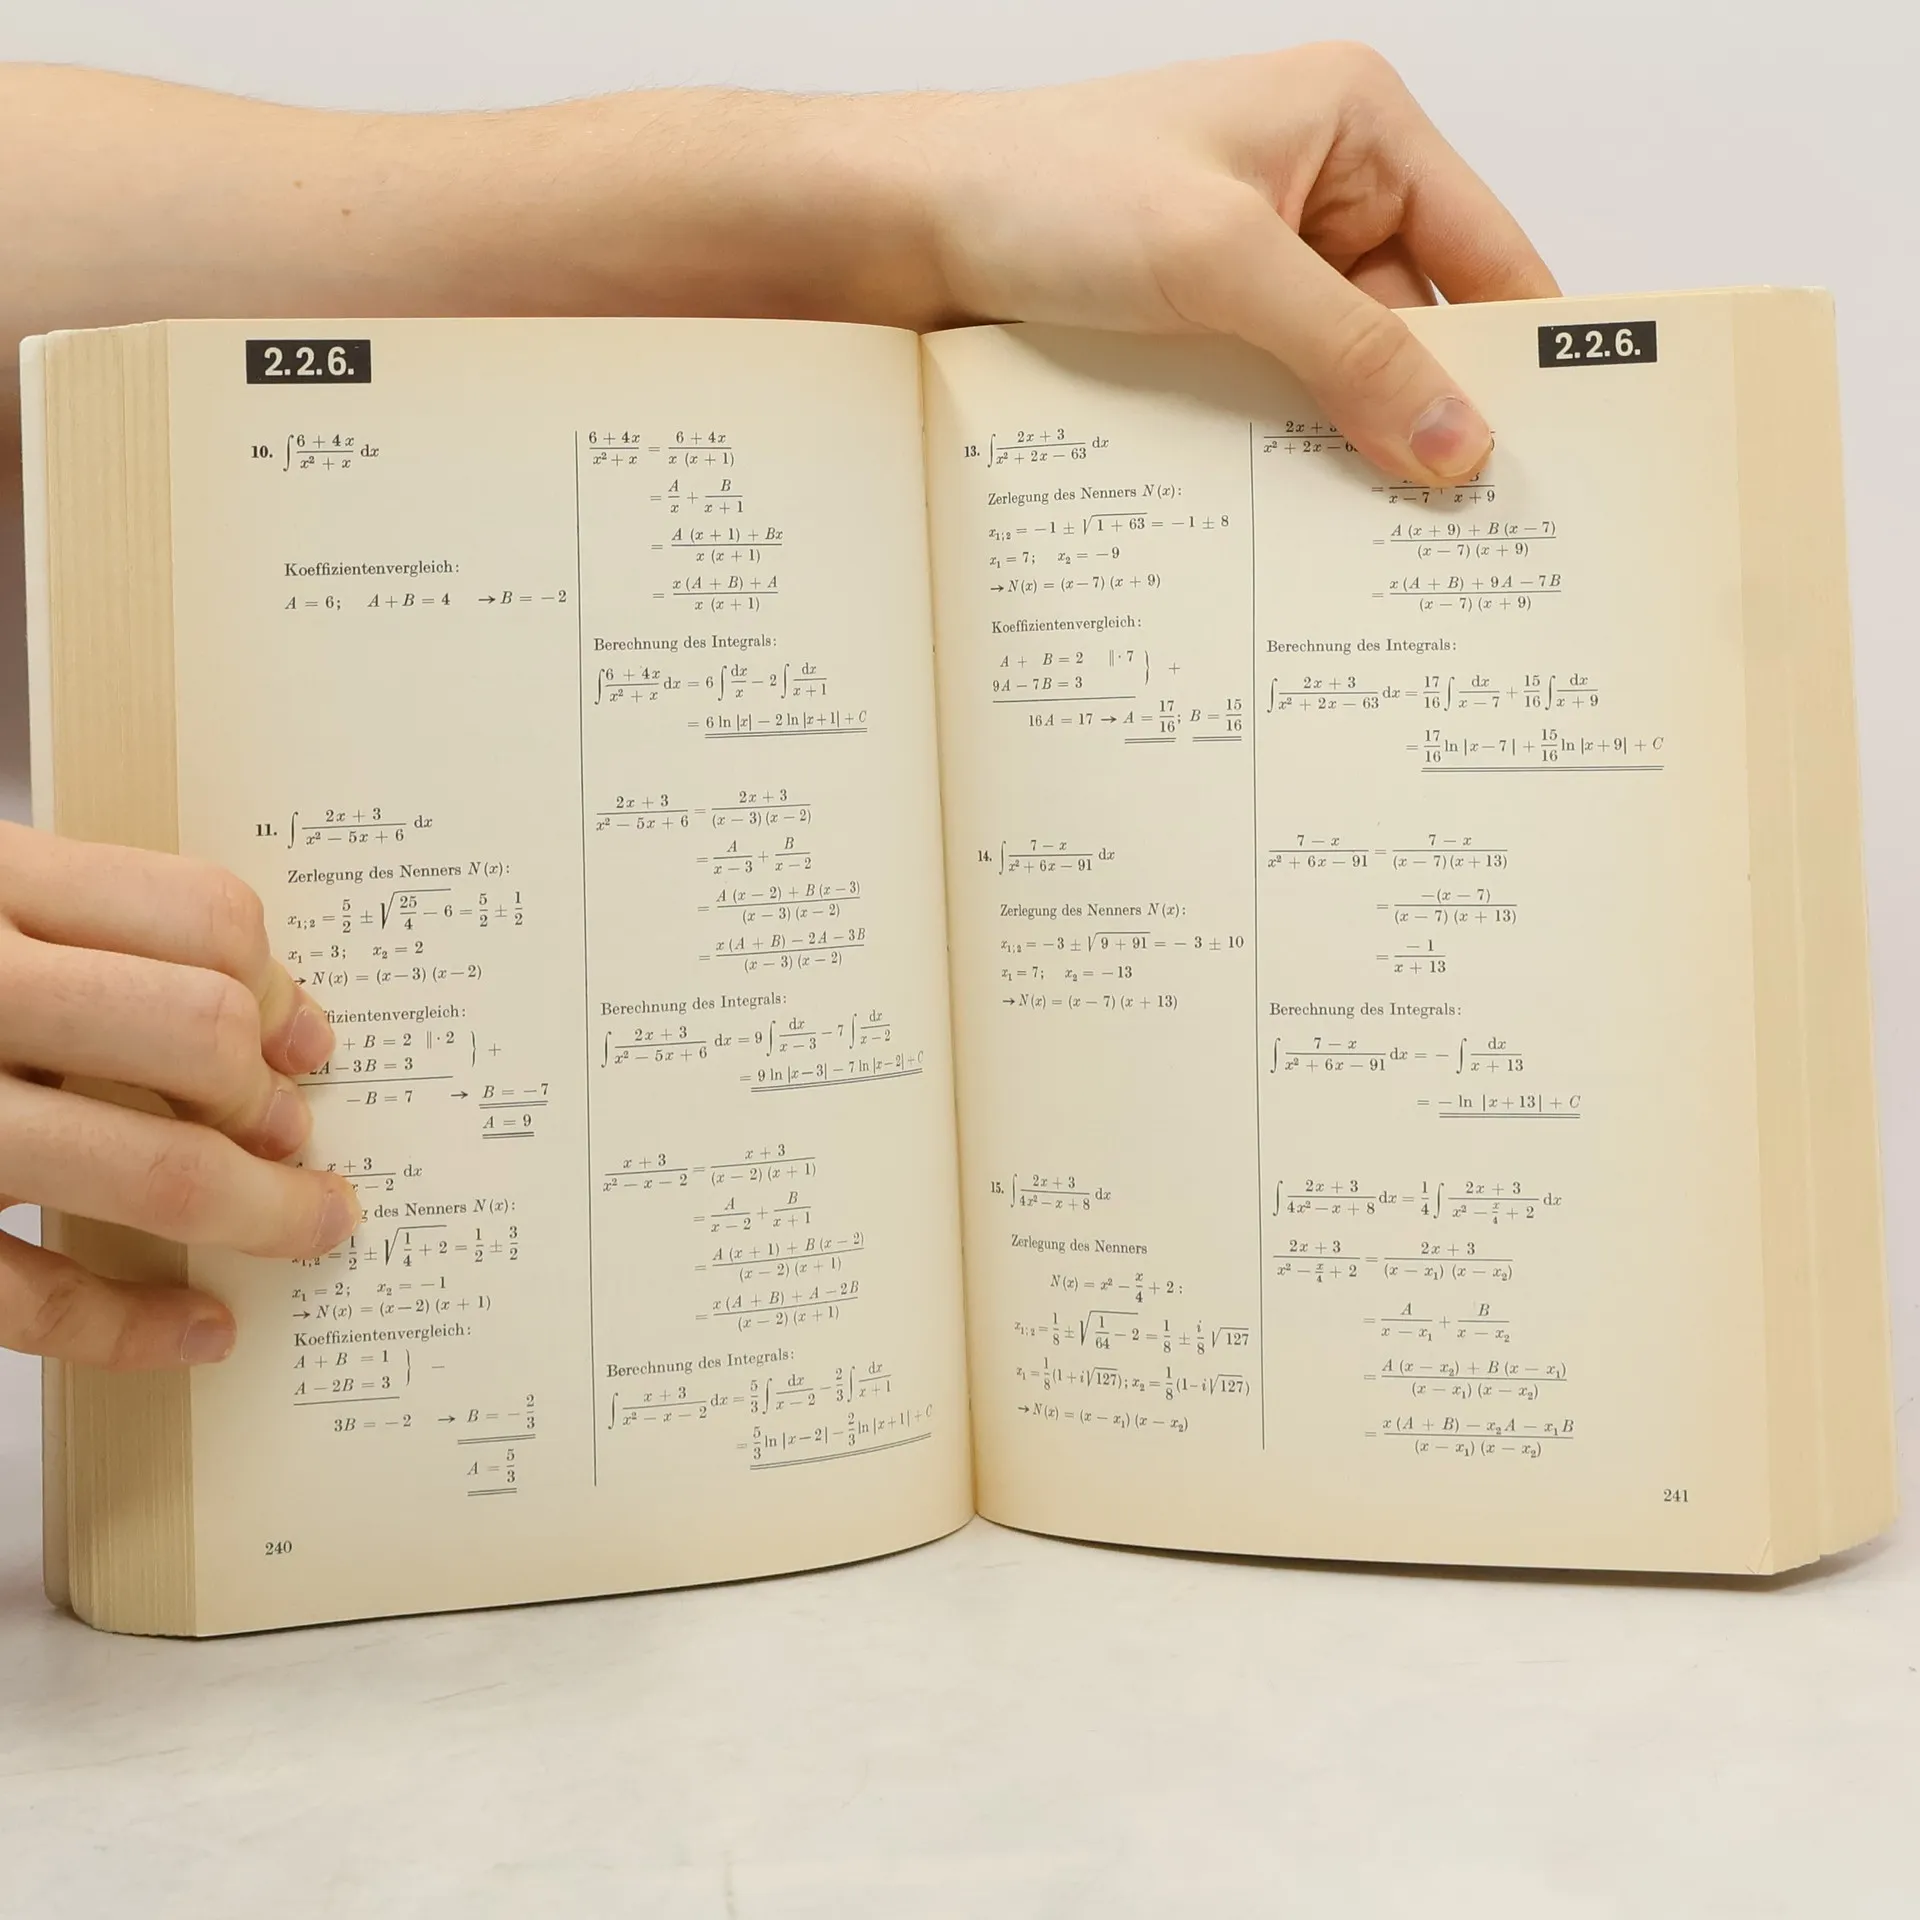 2.2.6.
10. ∫ (6 + 4x)/(x² + x) dx
Koeffizientenvergleich:
A = 6; A + B = 4 → B = −2
(6 + 4x)/(x² + x) = (6 + 4x)/(x (x + 1))
= A/x + B/(x + 1)
= (A (x + 1) + Bx)/(x (x + 1))
= (x (A + B) + A)/(x (x + 1))
Berechnung des Integrals:
∫ (6 + 4x)/(x² + x) dx = 6 ∫ dx/x − 2 ∫ dx/(x + 1)
= 6 ln |x| − 2 ln |x+1| + C
11. ∫ (2x + 3)/(x² − 5x + 6) dx
Zerlegung des Nenners N(x):
x₁;₂ = 5/2 ± √(25/4 − 6) = 5/2 ± 1/2
x₁ = 3; x₂ = 2
→ N(x) = (x−3) (x−2)
fizientenvergleich:
+ B = 2 ‖· 2 } +
A − 3B = 3
−B = 7 → B = −7
A = 9
(2x + 3)/(x² − 5x + 6) = (2x + 3)/((x − 3) (x − 2))
= A/(x − 3) + B/(x − 2)
= (A (x − 2) + B (x − 3))/((x − 3) (x − 2))
= (x (A + B) − 2A − 3B)/((x − 3) (x − 2))
Berechnung des Integrals:
∫ (2x + 3)/(x² − 5x + 6) dx = 9 ∫ dx/(x − 3) − 7 ∫ dx/(x − 2)
= 9 ln |x−3| − 7 ln |x−2| + C
x + 3
x − 2 dx
des Nenners N(x):
x₁;₂ = 1/2 ± √(1/4 + 2) = 1/2 ± 3/2
x₁ = 2; x₂ = −1
→ N(x) = (x−2) (x + 1)
Koeffizientenvergleich:
A + B = 1 } −
A − 2B = 3
3B = −2 → B = −2/3
A = 5/3
(x + 3)/(x² − x − 2) = (x + 3)/((x − 2) (x + 1))
= A/(x − 2) + B/(x + 1)
= (A (x + 1) + B (x − 2))/((x − 2) (x + 1))
= (x (A + B) + A − 2B)/((x − 2) (x + 1))
Berechnung des Integrals:
∫ (x + 3)/(x² − x − 2) dx = 5/3 ∫ dx/(x − 2) − 2/3 ∫ dx/(x + 1)
= 5/3 ln |x−2| − 2/3 ln |x+1| + C
240
2.2.6.
13. ∫ (2x + 3)/(x² + 2x − 63) dx
Zerlegung des Nenners N(x):
x₁;₂ = −1 ± √(1 + 63) = −1 ± 8
x₁ = 7; x₂ = −9
→ N(x) = (x−7) (x + 9)
Koeffizientenvergleich:
A + B = 2 ‖· 7 } +
9A − 7B = 3
16A = 17 → A = 17/16; B = 15/16
2x +
x² + 2x −
= /(x − 7) + B/(x + 9)
= (A (x + 9) + B (x − 7))/((x − 7) (x + 9))
= (x (A + B) + 9A − 7B)/((x − 7) (x + 9))
Berechnung des Integrals:
∫ (2x + 3)/(x² + 2x − 63) dx = 17/16 ∫ dx/(x − 7) + 15/16 ∫ dx/(x + 9)
= 17/16 ln |x−7| + 15/16 ln |x+9| + C
14. ∫ (7 − x)/(x² + 6x − 91) dx
Zerlegung des Nenners N(x):
x₁;₂ = −3 ± √(9 + 91) = −3 ± 10
x₁ = 7; x₂ = −13
→ N(x) = (x − 7) (x + 13)
(7 − x)/(x² + 6x − 91) = (7 − x)/((x − 7) (x + 13))
= −(x − 7)/((x − 7) (x + 13))
= −1/(x + 13)
Berechnung des Integrals:
∫ (7 − x)/(x² + 6x − 91) dx = − ∫ dx/(x + 13)
= − ln |x+13| + C
15. ∫ (2x + 3)/(4x² − x + 8) dx
Zerlegung des Nenners
N(x) = x² − x/4 + 2:
x₁;₂ = 1/8 ± √(1/64 − 2) = 1/8 ± i/8 √127
x₁ = 1/8 (1 + i√127); x₂ = 1/8 (1 − i√127)
→ N(x) = (x − x₁) (x − x₂)
∫ (2x + 3)/(4x² − x + 8) dx = 1/4 ∫ (2x + 3)/(x² − x/4 + 2) dx
(2x + 3)/(x² − x/4 + 2) = (2x + 3)/((x − x₁) (x − x₂))
= A/(x − x₁) + B/(x − x₂)
= (A (x − x₂) + B (x − x₁))/((x − x₁) (x − x₂))
= (x (A + B) − x₂A − x₁B)/((x − x₁) (x − x₂))
241